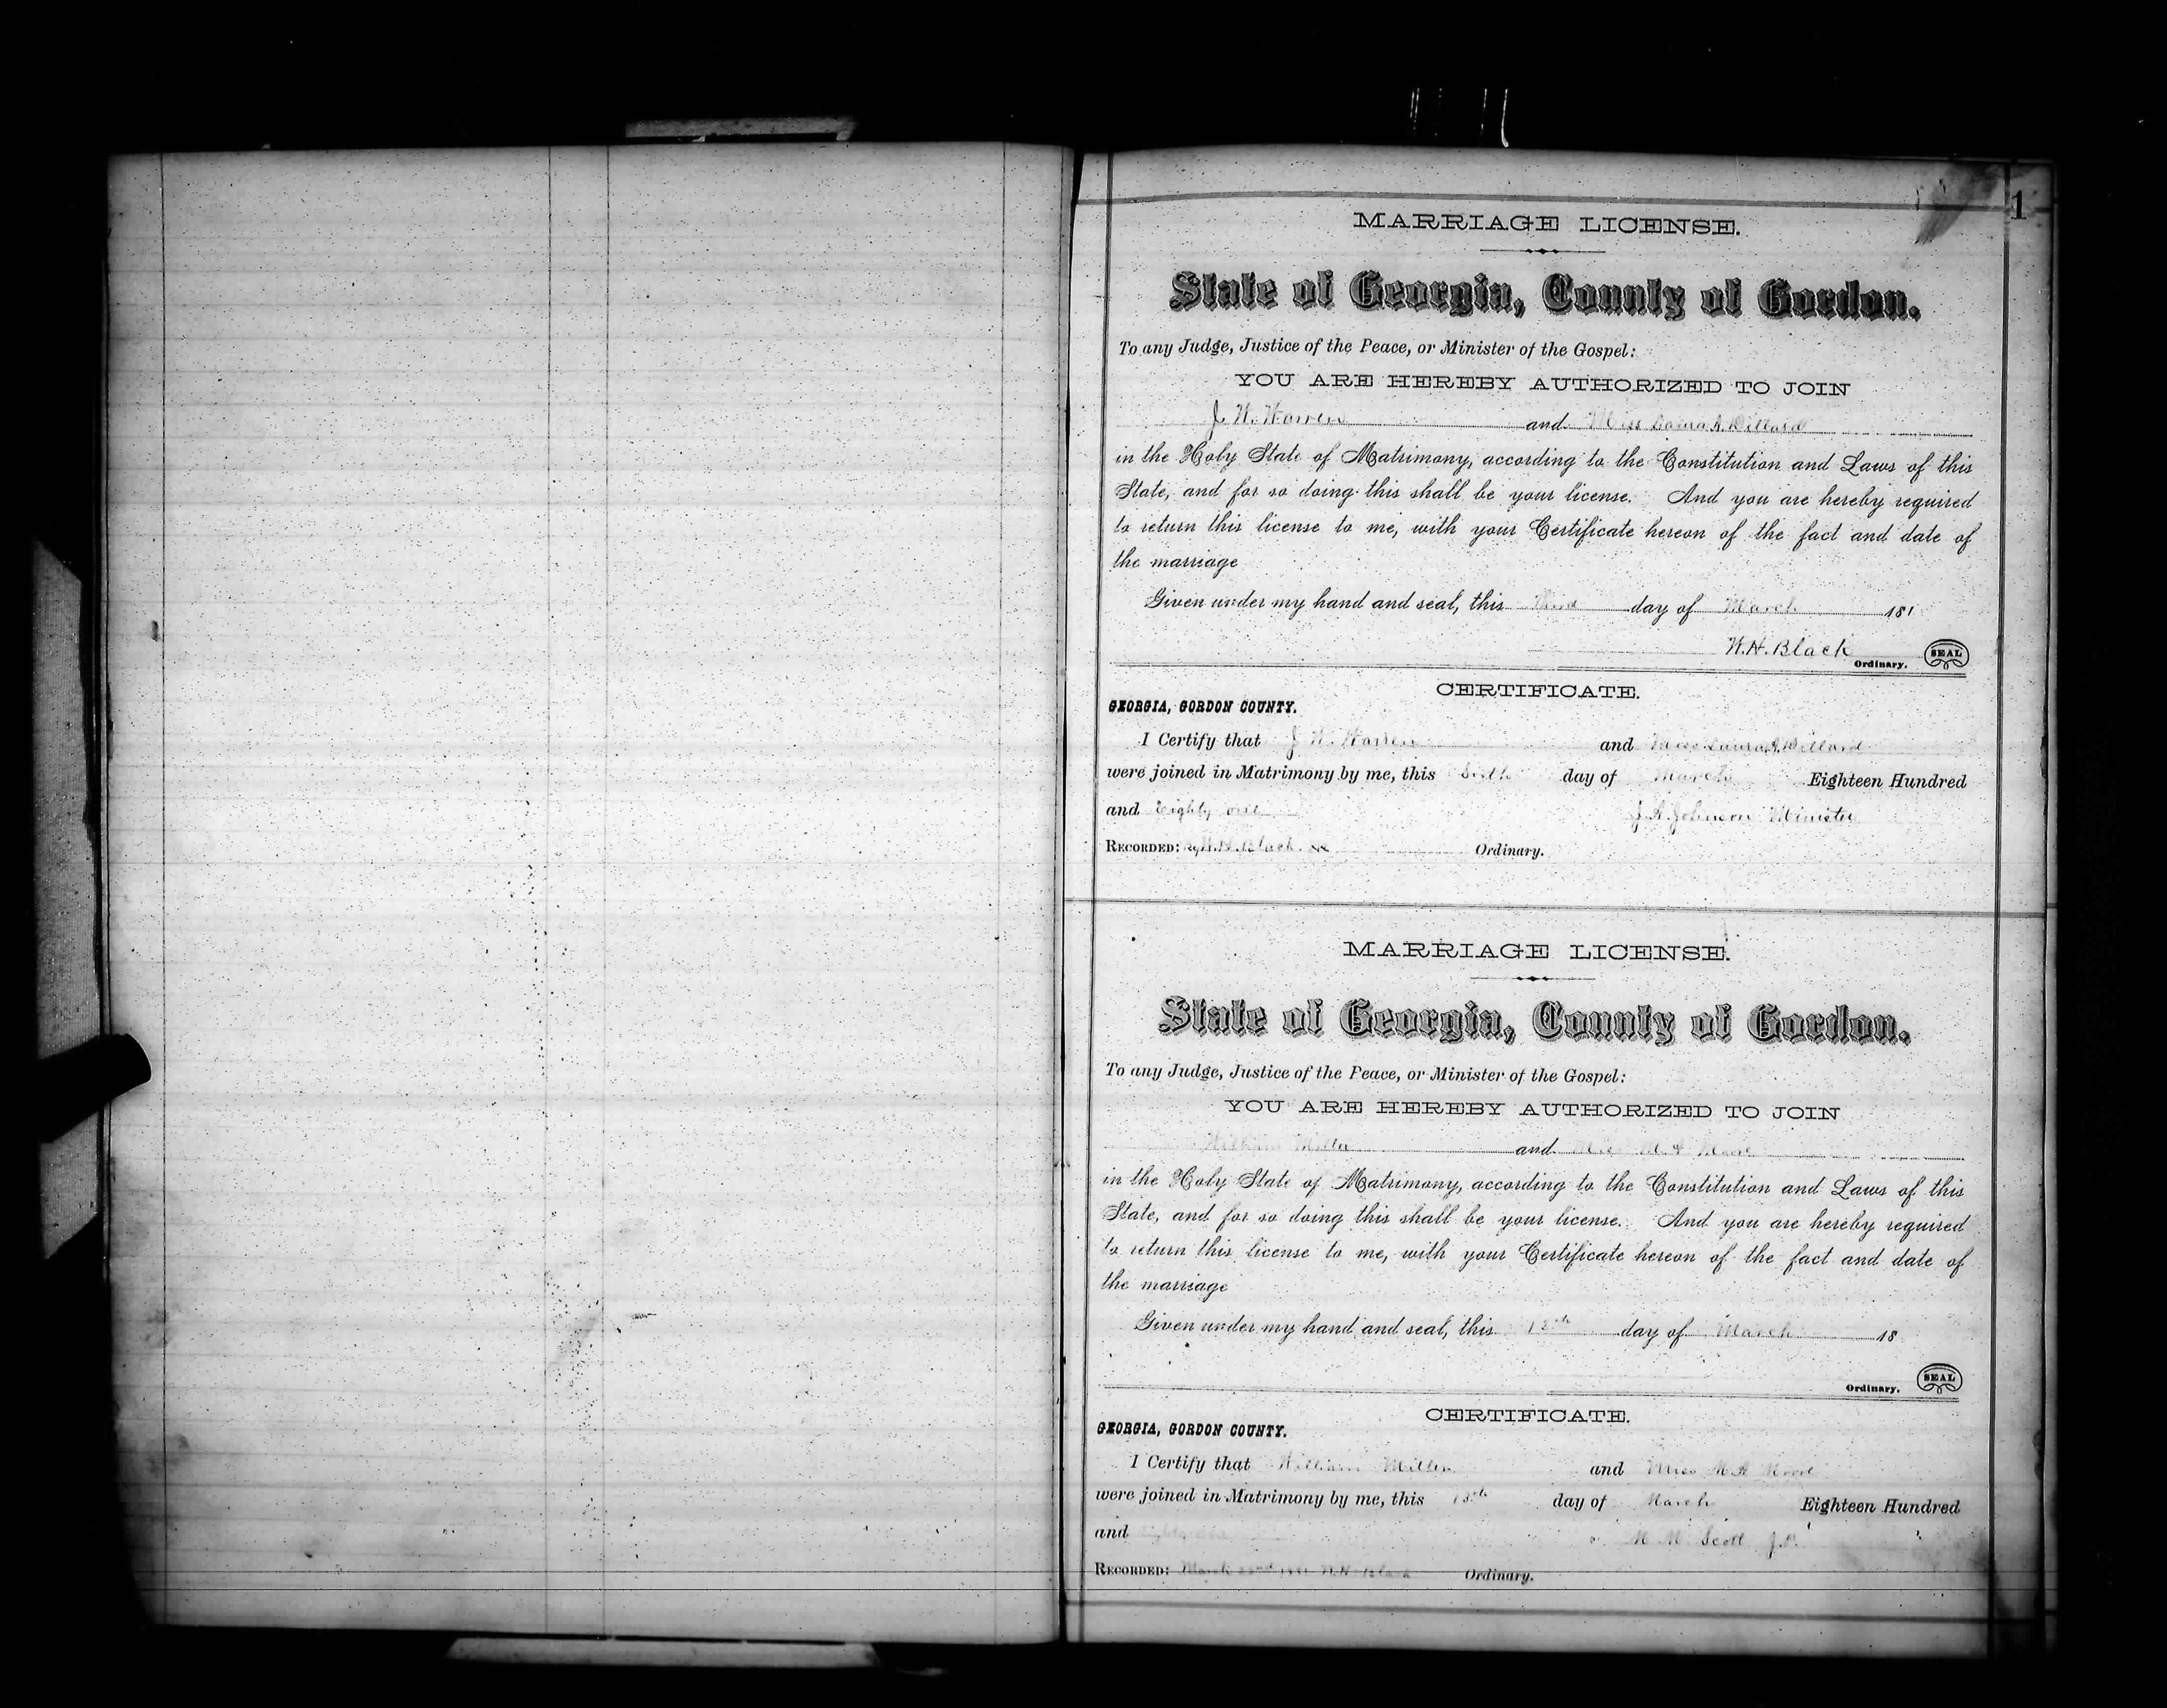 1
MARRIAGE LICENSE.
State of Georgia, County of Gordon.
To any Judge, Justice of the Peace, or Minister of the Gospel:
YOU ARE HEREBY AUTHORIZED TO JOIN
J. W. Warren and Miss Laura A. Dillard
in the Holy State of Matrimony, according to the Constitution and Laws of this
State, and for so doing this shall be your license. And you are hereby required
to return this license to me, with your Certificate hereon of the fact and date of
the marriage
Given under my hand and seal, this Third day of March 181
W. H. Black
Ordinary. SEAL
CERTIFICATE.
GEORGIA, GORDON COUNTY.
I Certify that J. W. Warren and Miss Laura A. Dillard
were joined in Matrimony by me, this day of March Eighteen Hundred
and Eighty one J. A. Johnson Minister
RECORDED: W. H. Black Ordinary.
MARRIAGE LICENSE.
State of Georgia, County of Gordon.
To any Judge, Justice of the Peace, or Minister of the Gospel:
YOU ARE HEREBY AUTHORIZED TO JOIN
William Miller and Miss M. A.
in the Holy State of Matrimony, according to the Constitution and Laws of this
State, and for so doing this shall be your license. And you are hereby required
to return this license to me, with your Certificate hereon of the fact and date of
the marriage
Given under my hand and seal, this 13th day of March 18
Ordinary. SEAL
CERTIFICATE.
GEORGIA, GORDON COUNTY.
I Certify that William Miller and Miss M. A.
were joined in Matrimony by me, this 13th day of March Eighteen Hundred
and Scott J.P.
RECORDED: March 1881 W. H. Black Ordinary.